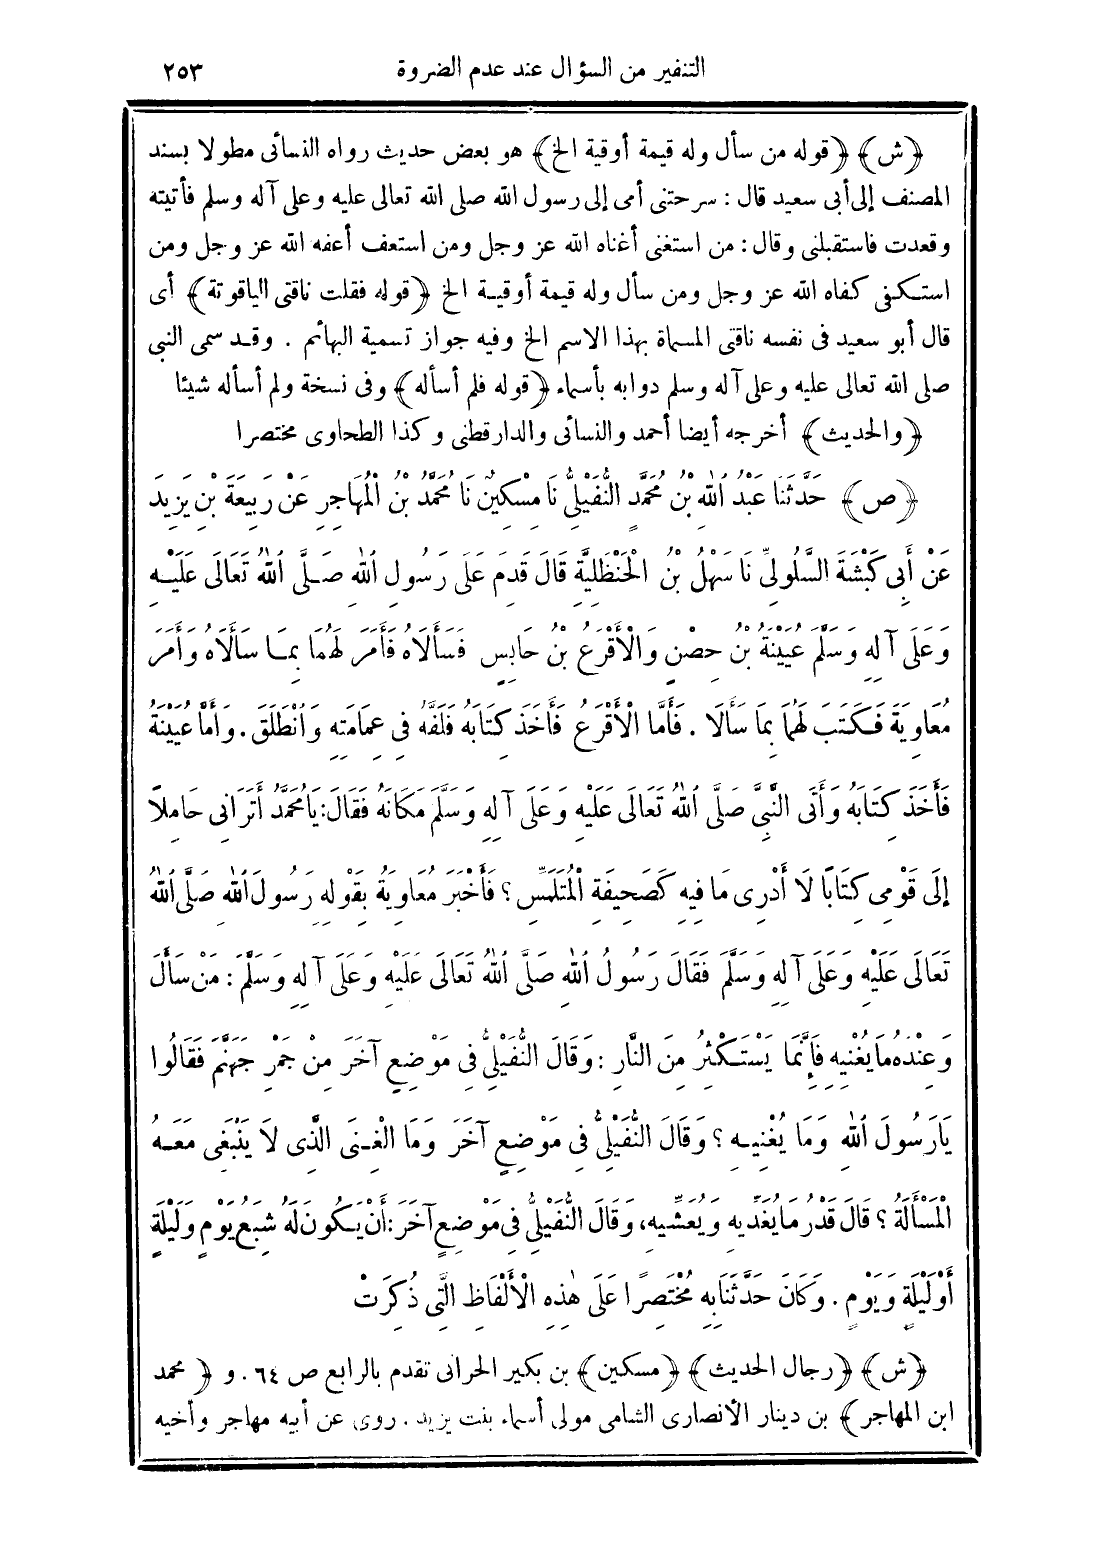 التنفير من السؤال عند عدم الضروة ٢٥٣
﴿ش﴾ ﴿قوله من سأل وله قيمة أوقية الخ﴾ هو بعض حديث رواه النسائى مطولا بسند
المصنف إلى أبى سعيد قال : سرحتنى أمى إلى رسول الله صلى الله تعالى عليه وعلى آله وسلم فأتيته
وقعدت فاستقبلنى وقال : من استغنى أغناه الله عز وجل ومن استعف أعفه الله عز وجل ومن
استكفى كفاه الله عز وجل ومن سأل وله قيمة أوقية الخ ﴿قوله فقلت ناقتى الياقوتة﴾ أى
قال أبو سعيد فى نفسه ناقتى المسماة بهذا الاسم الخ وفيه جواز تسمية البهائم . وقد سمى النبى
صلى الله تعالى عليه وعلى آله وسلم دوابه بأسماء ﴿قوله فلم أسأله﴾ وفى نسخة ولم أسأله شيئا
﴿والحديث﴾ أخرجه أيضا أحمد والنسائى والدارقطنى وكذا الطحاوى مختصرا
﴿ص﴾ حَدَّثَنَا عَبْدُ اللهِ بْنُ مُحَمَّدٍ النُّفَيْلِىُّ نَا مِسْكِينٌ نَا مُحَمَّدُ بْنُ الْمُهَاجِرِ عَنْ رَبِيعَةَ بْنِ يَزِيدَ
عَنْ أَبِى كَبْشَةَ السَّلُولِىِّ نَا سَهْلُ بْنُ الْحَنْظَلِيَّةِ قَالَ قَدِمَ عَلَى رَسُولِ اللهِ صَلَّى اللهُ تَعَالَى عَلَيْهِ
وَعَلَى آلِهِ وَسَلَّمَ عُيَيْنَةُ بْنُ حِصْنٍ وَالْأَقْرَعُ بْنُ حَابِسٍ فَسَأَلَاهُ فَأَمَرَ لَهُمَا بِمَا سَأَلَاهُ وَأَمَرَ
مُعَاوِيَةَ فَكَتَبَ لَهُمَا بِمَا سَأَلَا . فَأَمَّا الْأَقْرَعُ فَأَخَذَ كِتَابَهُ فَلَفَّهُ فِى عِمَامَتِهِ وَانْطَلَقَ . وَأَمَّا عُيَيْنَةُ
فَأَخَذَ كِتَابَهُ وَأَتَى النَّبِىَّ صَلَّى اللهُ تَعَالَى عَلَيْهِ وَعَلَى آلِهِ وَسَلَّمَ مَكَانَهُ فَقَالَ: يَا مُحَمَّدُ أَتَرَانِى حَامِلاً
إِلَى قَوْمِى كِتَابًا لَا أَدْرِى مَا فِيهِ كَصَحِيفَةِ الْمُتَلَمِّسِ ؟ فَأَخْبَرَ مُعَاوِيَةُ بِقَوْلِهِ رَسُولَ اللهِ صَلَّى اللهُ
تَعَالَى عَلَيْهِ وَعَلَى آلِهِ وَسَلَّمَ فَقَالَ رَسُولُ اللهِ صَلَّى اللهُ تَعَالَى عَلَيْهِ وَعَلَى آلِهِ وَسَلَّمَ : مَنْ سَأَلَ
وَعِنْدَهُ مَا يُغْنِيهِ فَإِنَّمَا يَسْتَكْثِرُ مِنَ النَّارِ : وَقَالَ النُّفَيْلِىُّ فِى مَوْضِعٍ آخَرَ مِنْ جَمْرِ جَهَنَّمَ فَقَالُوا
يَارَسُولَ اللهِ وَمَا يُغْنِيهِ ؟ وَقَالَ النُّفَيْلِىُّ فِى مَوْضِعٍ آخَرَ وَمَا الْغِنَى الَّذِى لَا يَنْبَغِى مَعَهُ
الْمَسْأَلَةُ ؟ قَالَ قَدْرُ مَا يُغَدِّيهِ وَيُعَشِّيهِ، وَقَالَ النُّفَيْلِىُّ فِى مَوْضِعٍ آخَرَ: أَنْ يَكُونَ لَهُ شِبَعُ يَوْمٍ وَلَيْلَةٍ
أَوْ لَيْلَةٍ وَيَوْمٍ . وَكَانَ حَدَّثَنَا بِهِ مُخْتَصِرًا عَلَى هٰذِهِ الْأَلْفَاظِ الَّتِى ذُكِرَتْ
﴿ش﴾ ﴿رجال الحديث﴾ ﴿مسكين﴾ بن بكير الحرانى تقدم بالرابع ص ٦٤ . و ﴿محمد
ابن المهاجر﴾ بن دينار الأنصارى الشامى مولى أسماء بنت يزيد . روى عن أبيه مهاجر وأخيه